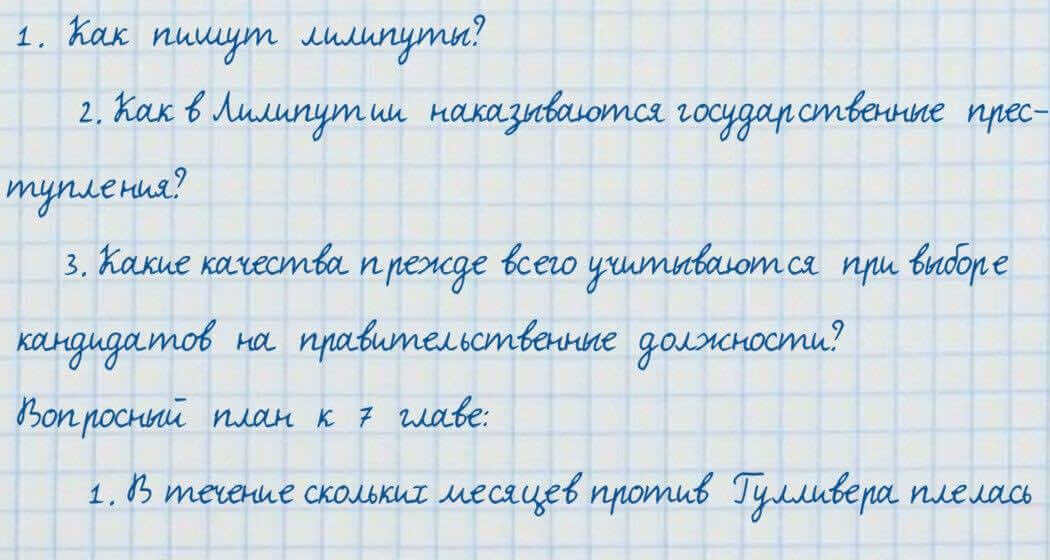 1. Как пишут лилипуты?
2. Как в Лилипутии наказываются государственные прес-
тупления?
3. Какие качества прежде всего учитываются при выборе
кандидатов на правительственные должности?
Вопросный план к 7 главе:
1. В течение скольких месяцев против Гулливера плелась